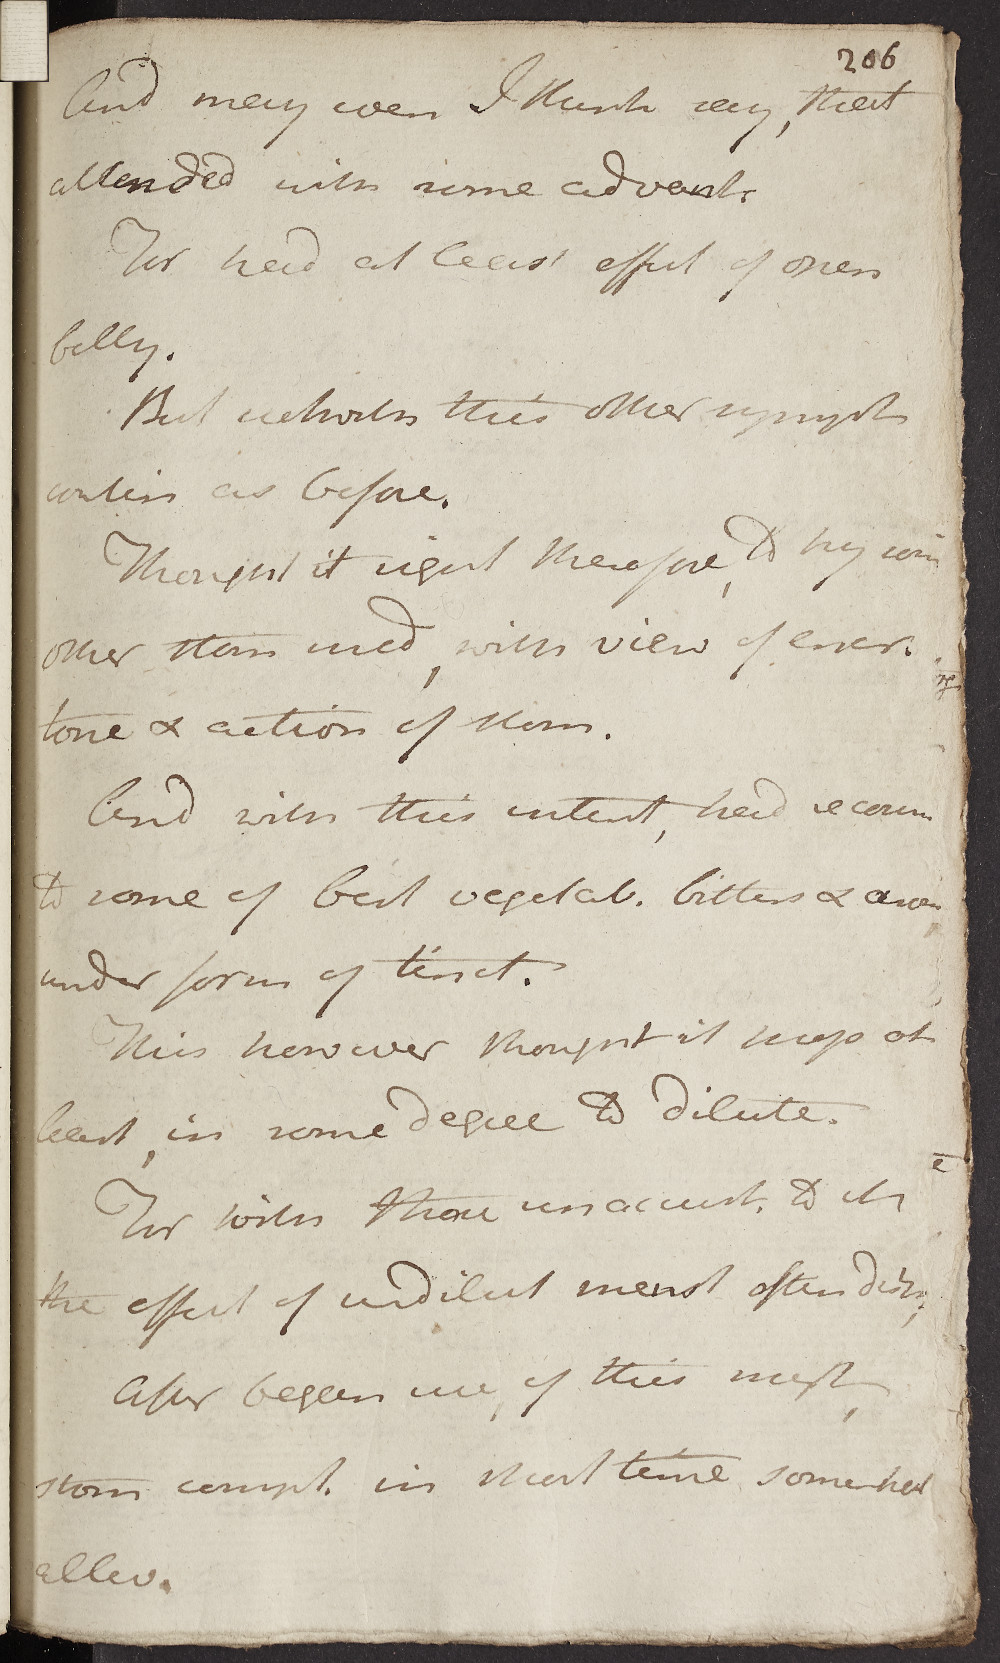 206
And may even I think say, that
attended with some advant.
For had at least effect of open
belly.
But notwith this other sympt
contin as before.
Thought it right therefore, to try som
other stom med, with view of encr.
tone & action of stom.
And with this intent, had recour
to some of best vegetab. bitters & arom
under form of tinct.
This however thought it necess at
least, in some degree to dilute.
For with those unaccust. to it
the effect of undilut menst often
After began use of this
stom compt. in short time somewhat
allev.